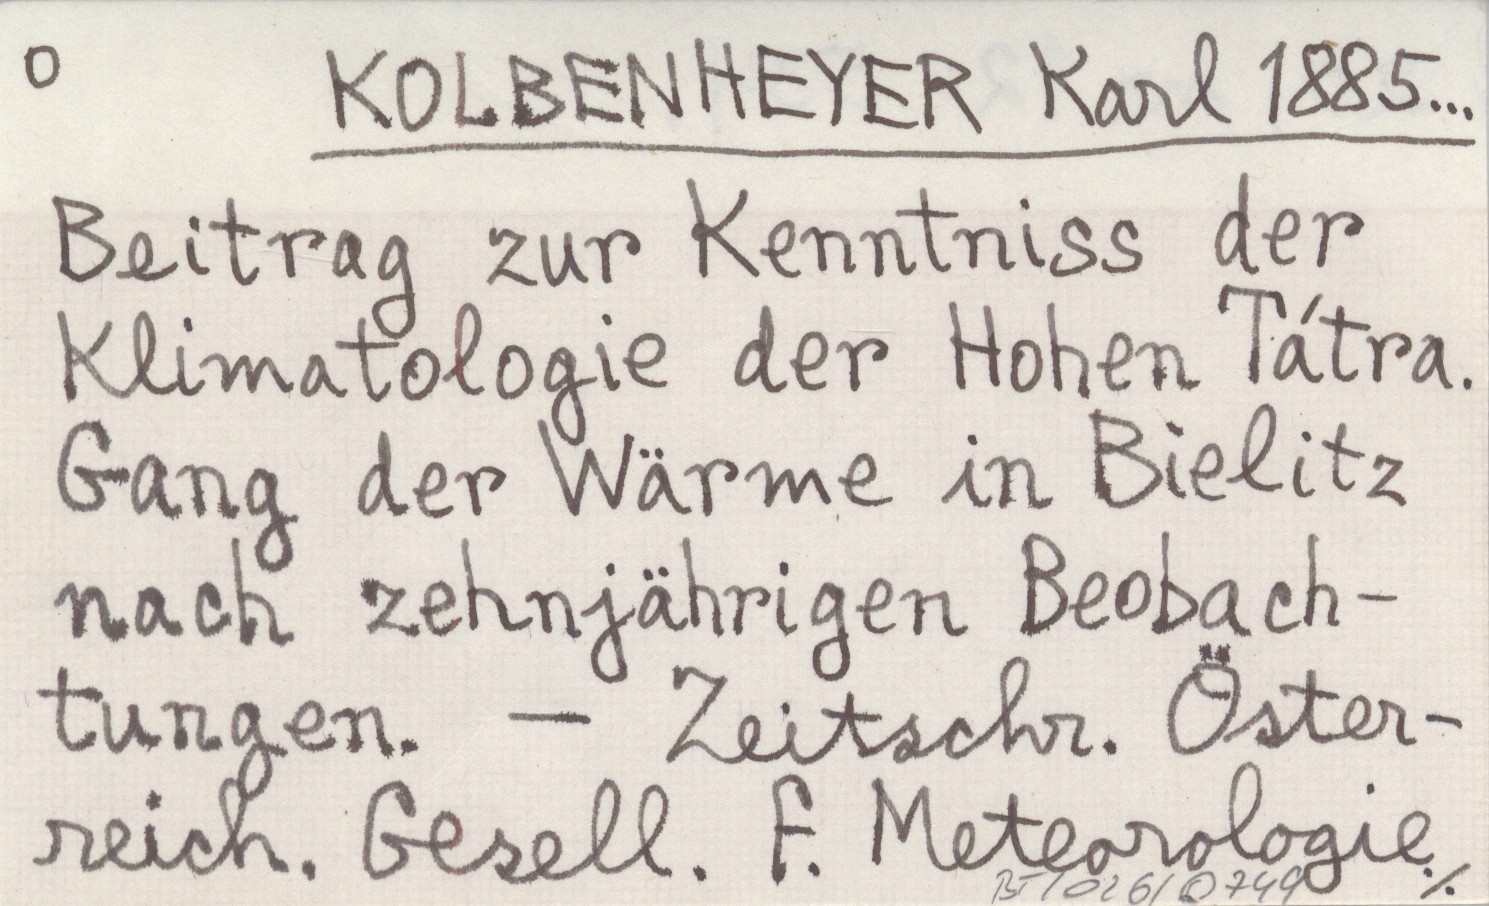 O KOLBENHEYER Karl 1885...
Beitrag zur Kenntniss der
Klimatologie der Hohen Tátra.
Gang der Wärme in Bielitz
nach zehnjährigen Beobach-
tungen. — Zeitschr. Öster-
reich. Gesell. F. Meteorologie ./.